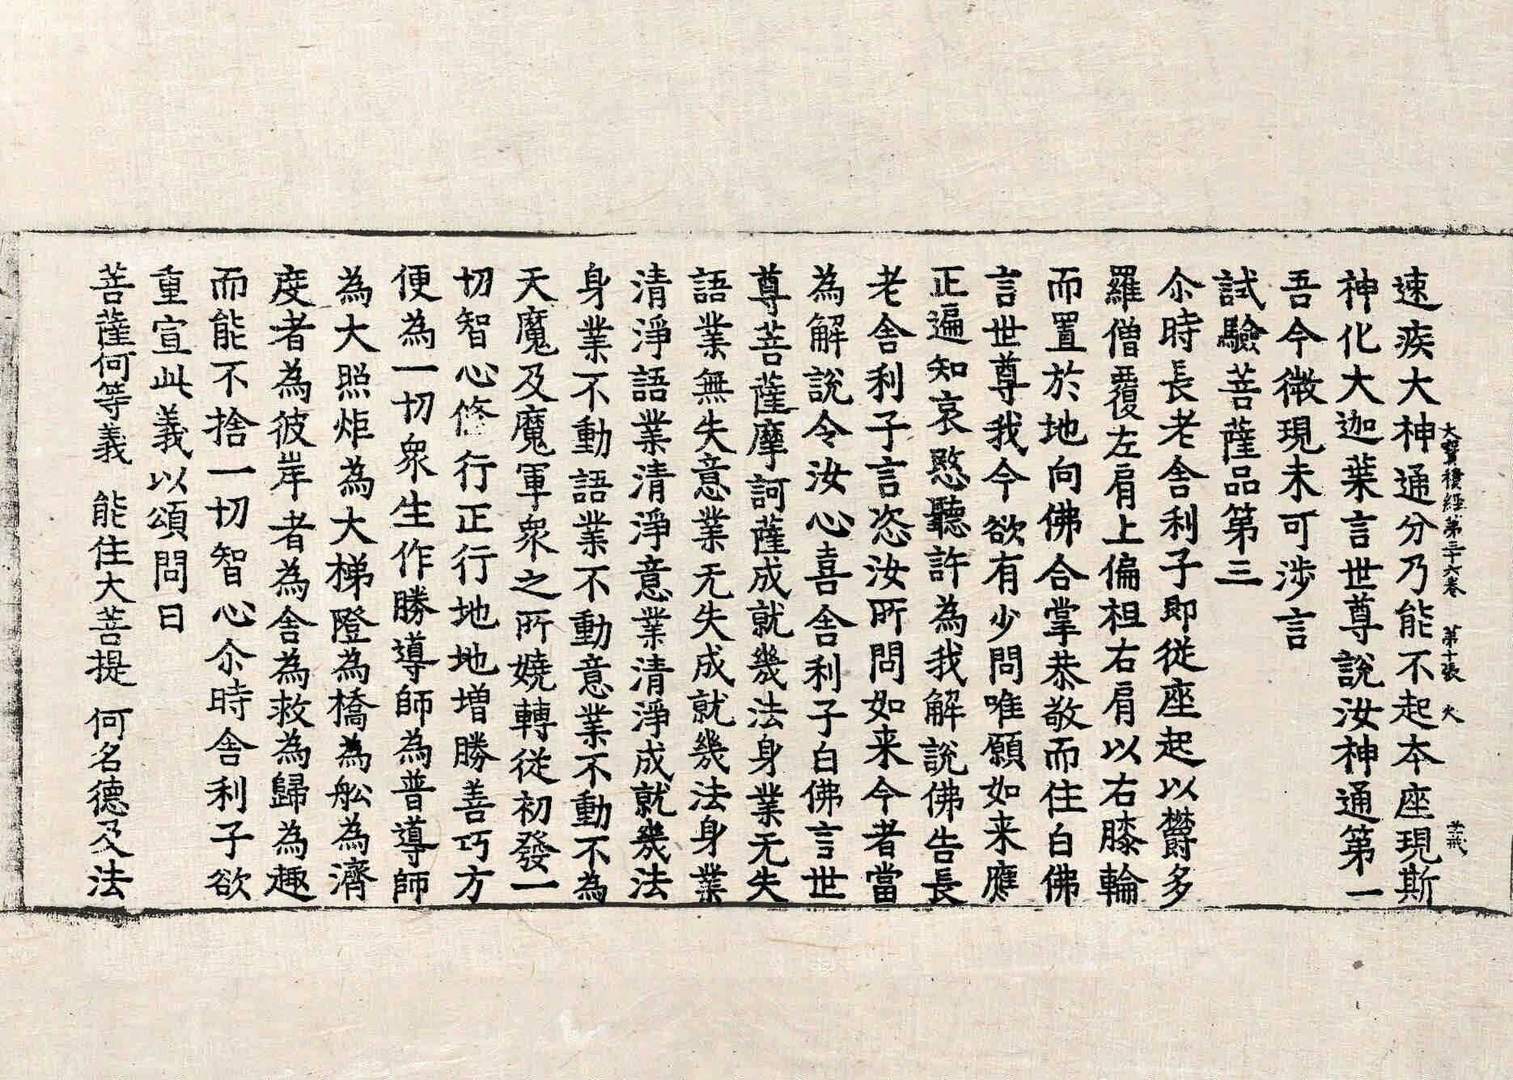 大寶積經第三十六卷 第十張 火
速疾大神通分乃能不起本座現斯
神化大迦葉言世尊說汝神通第一
吾今微現未可涉言
試驗菩薩品第三
尒時長老舍利子即從座起以欝多
羅僧覆左肩上偏袒右肩以右膝輪
而置於地向佛合掌恭敬而住白佛
言世尊我今欲有少問唯願如来應
正遍知哀愍聽許為我解說佛告長
老舍利子言恣汝所問如来今者當
為解說令汝心喜舍利子白佛言世
尊菩薩摩訶薩成就幾法身業无失
語業無失意業无失成就幾法身業
清淨語業清淨意業清淨成就幾法
身業不動語業不動意業不動不為
天魔及魔軍衆之所嬈轉従初發一
切智心修行正行地地增勝善巧方
便為一切衆生作勝導師為普導師
為大照炬為大梯隥為橋為舩為濟
度者為彼岸者為舍為救為歸為趣
而能不捨一切智心尒時舍利子欲
重宣此義以頌問曰
菩薩何等義 能住大菩提 何名德及法